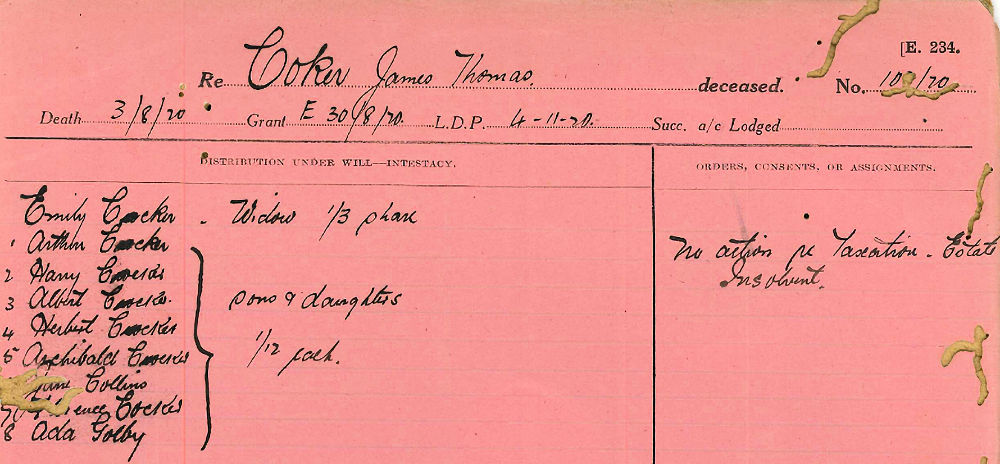 [E. 234.
Re Coker James Thomas deceased. No. /20
Death 3/8/20 Grant E 30/8/20. L.D.P. 4-11-20. Succ. a/c Lodged
DISTRIBUTION UNDER WILL—INTESTACY.
ORDERS, CONSENTS, OR ASSIGNMENTS.
Emily Cocker - Widow 1/3 share
1 Arthur Cocker
2 Harry Cocker
3 Albert Cocker
4 Herbert Cocker
5 Archibald Cocker
Collins
Cocker
8 Ada Golby
sons & daughters
1/12 each.
No action re Taxation - Estate
Insolvent.